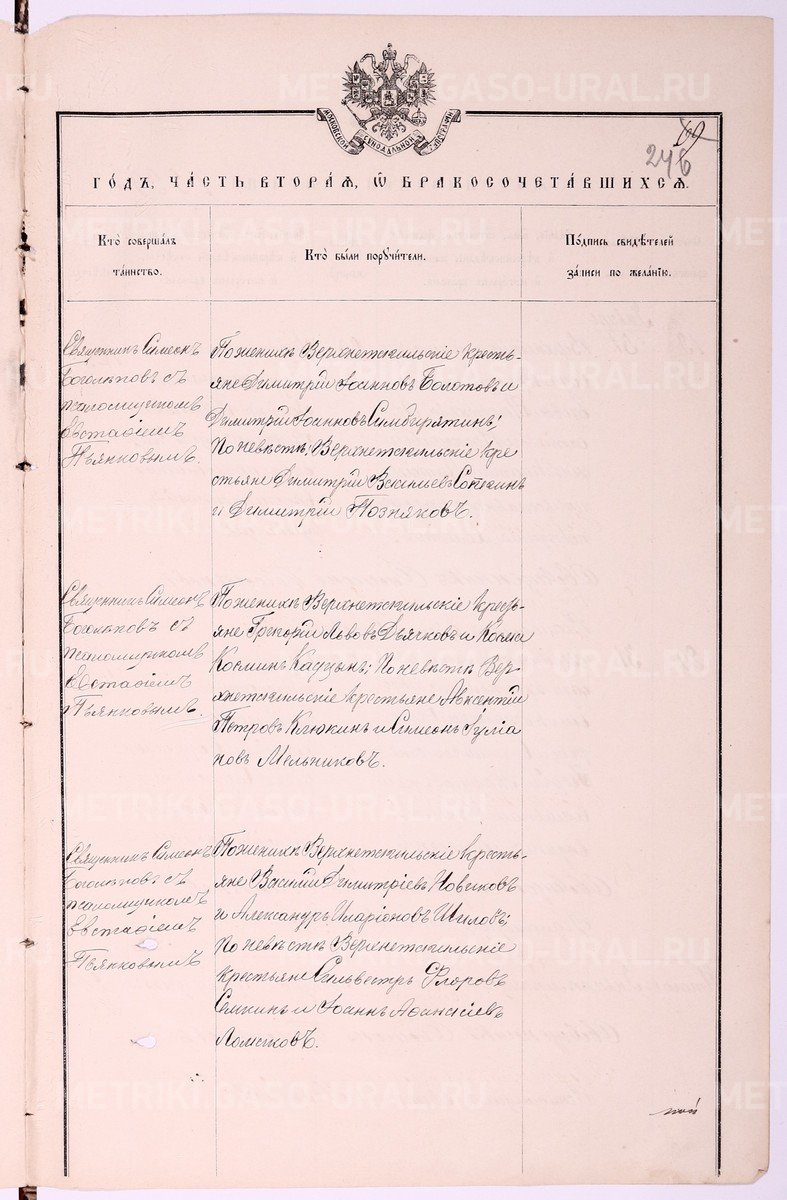 МОСКОВСКОЙ СѴНОДАЛЬНОЙ ТИПОГРАФІИ
69
246
ГО́ДЪ, ЧА́СТЬ ВТОРА́Я, Ѽ БРАКОСОЧЕТА́ВШИХСЯ.
Кто̀ соверша́лъ
та́инство.
Кто̀ бы́ли поручи́тели.
По́дпись свидѣ́телей
за́писи по жела́нію.
Священникъ Симеонъ
Боголѣповъ съ
псаломщикомъ
Евстафіемъ
Пьянковымъ.
По женихѣ Верхнетагильскіе кресть-
яне Димитрій Іоанновъ Болотовъ и
Димитрій Іоанновъ Симбирятинъ;
По невѣстѣ: Верхнетагильскіе кре
стьяне Димитрій Василіевъ Соткинъ
и Димитрій Позняковъ.
Священникъ Симеонъ
Боголѣповъ съ
псаломщикомъ
Евстафіемъ
Пьянковымъ.
По женихѣ Верхнетагильскіе кресть-
яне Григорій Львовъ Дьячковъ и Косма
Косминъ; По невѣстѣ Вер-
хнетагильскіе крестьяне Авксентій
Петровъ Клюкинъ и Симеонъ Іуліа
новъ Мельниковъ.
Священникъ Симеонъ
Боголѣповъ съ
псаломщикомъ
Евстафіемъ
Пьянковымъ
По женихѣ Верхнетагильскіе кресть-
яне Василій Димитріевъ Новиковъ
и Александръ Иларіоновъ Шиловъ;
По невѣстѣ Верхнетагильскіе
крестьяне Сильвестръ Флоровъ
Семкинъ и Іоаннъ Аѳанасіевъ
Ломаковъ.
METRIKI.GASO-URAL.RU